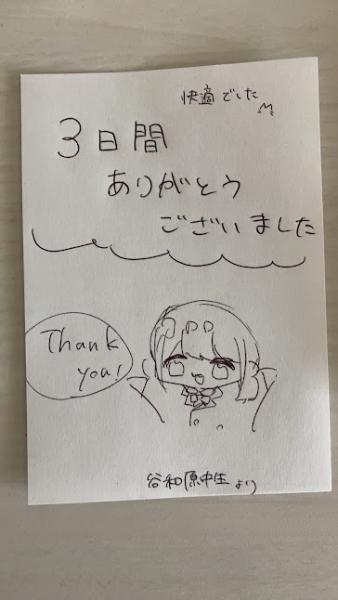 快適でした
3日間
ありがとう
ございました
Thank
you!
谷和原中生より